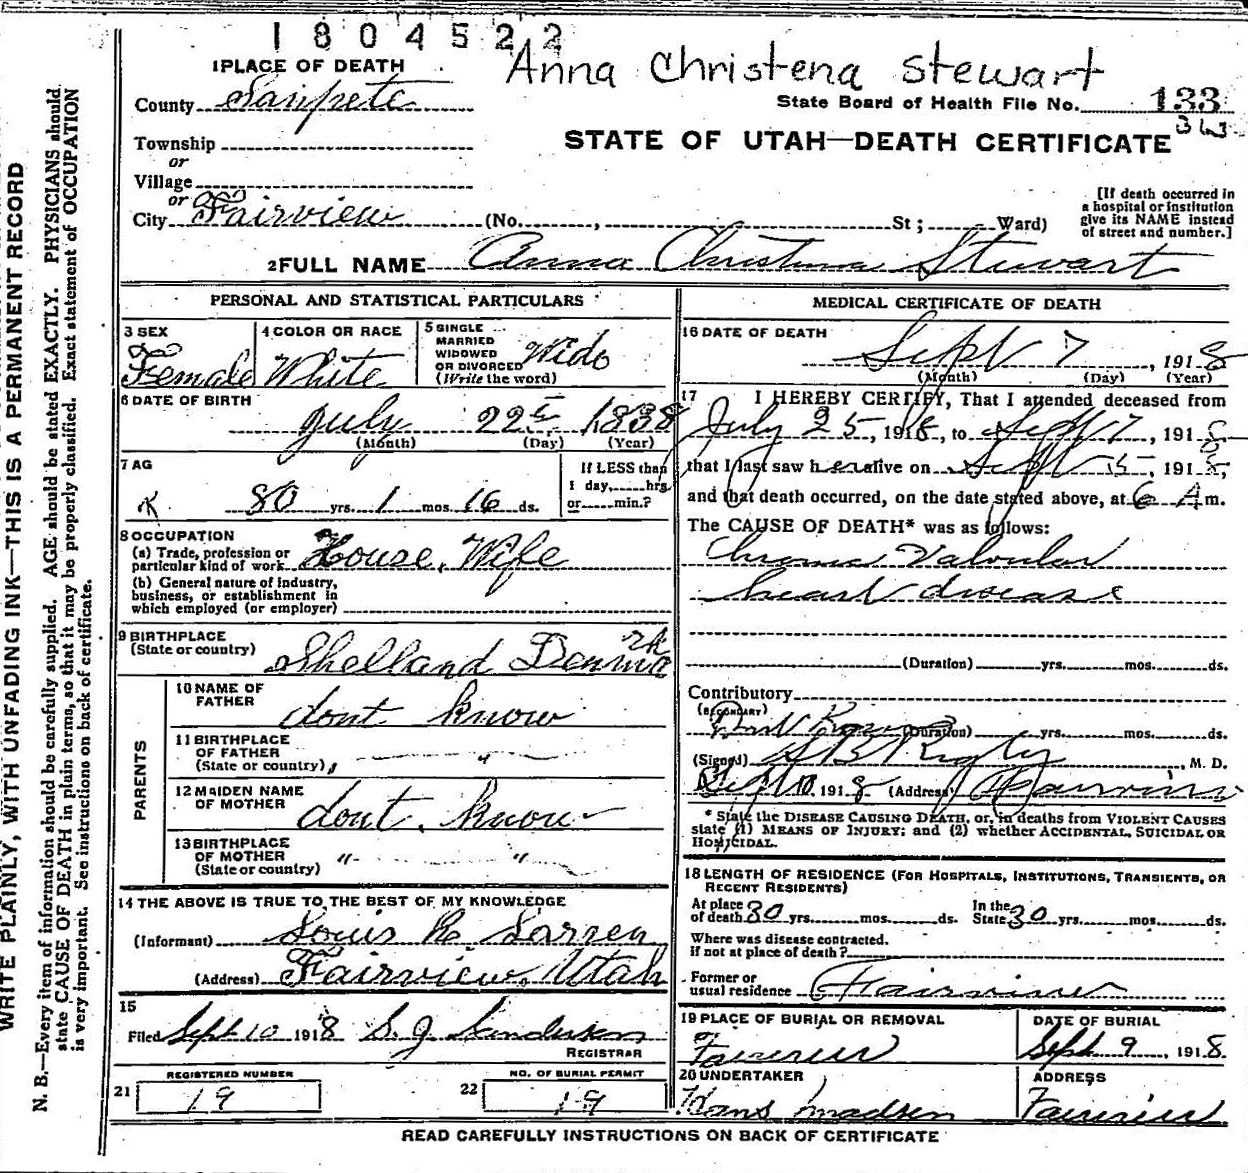 1804522
Anna Christena Stewart
1 PLACE OF DEATH
County Sanpete
State Board of Health File No. 133
34
Township
or
Village
or
City Fairview (No. , St ; Ward)
STATE OF UTAH—DEATH CERTIFICATE
[If death occurred in
a hospital or institution
give its NAME instead
of street and number.]
2 FULL NAME Anna Christina Stewart
PERSONAL AND STATISTICAL PARTICULARS
3 SEX
Female
4 COLOR OR RACE
White
5 SINGLE
MARRIED
WIDOWED
OR DIVORCED
(Write the word)
Wido
6 DATE OF BIRTH
July 22 1838
(Month) (Day) (Year)
7 AG
80 yrs. 1 mos. 16 ds.
If LESS than
1 day, hrs.
or min.?
8 OCCUPATION
(a) Trade, profession or
particular kind of work House Wife
(b) General nature of industry,
business, or establishment in
which employed (or employer)
9 BIRTHPLACE
(State or country) Shelland Denmark
PARENTS
10 NAME OF
FATHER dont know
11 BIRTHPLACE
OF FATHER
(State or country) "
12 MAIDEN NAME
OF MOTHER dont know
13 BIRTHPLACE
OF MOTHER
(State or country) " "
14 THE ABOVE IS TRUE TO THE BEST OF MY KNOWLEDGE
(Informant) Louis
(Address) Fairview, Utah
15
Filed Sept 10 1918 S. J. Sanderson
REGISTRAR
21 REGISTERED NUMBER
19
22 NO. OF BURIAL PERMIT
19
MEDICAL CERTIFICATE OF DEATH
16 DATE OF DEATH
Sept 7, 1918
(Month) (Day) (Year)
17 I HEREBY CERTIFY, That I attended deceased from
July 25, 1918, to Sept 7, 1918
that I last saw her alive on Sept 5, 1918,
and that death occurred, on the date stated above, at 6 A m.
The CAUSE OF DEATH* was as follows:
Chronic Valvular
heart disease
(Duration) yrs. mos. ds.
Contributory
(SECONDARY)
Dont Know (Duration) yrs. mos. ds.
(Signed) , M. D.
Sept 10, 1918 (Address) Fairview
* State the DISEASE CAUSING DEATH, or, in deaths from VIOLENT CAUSES
state (1) MEANS OF INJURY; and (2) whether ACCIDENTAL, SUICIDAL OR
HOMICIDAL.
18 LENGTH OF RESIDENCE (FOR HOSPITALS, INSTITUTIONS, TRANSIENTS, OR
RECENT RESIDENTS)
At place
of death 30 yrs. mos. ds.
In the
State 30 yrs. mos. ds.
Where was disease contracted.
If not at place of death?
Former or
usual residence Fairview
19 PLACE OF BURIAL OR REMOVAL
Fairview
DATE OF BURIAL
Sept. 9, 1918.
20 UNDERTAKER
Hans Madsen
ADDRESS
Fairview
READ CAREFULLY INSTRUCTIONS ON BACK OF CERTIFICATE
WRITE PLAINLY, WITH UNFADING INK—THIS IS A PERMANENT RECORD
N. B.—Every item of information should be carefully supplied. AGE should be stated EXACTLY. PHYSICIANS should
state CAUSE OF DEATH in plain terms, so that it may be properly classified. Exact statement of OCCUPATION
is very important. See instructions on back of certificate.